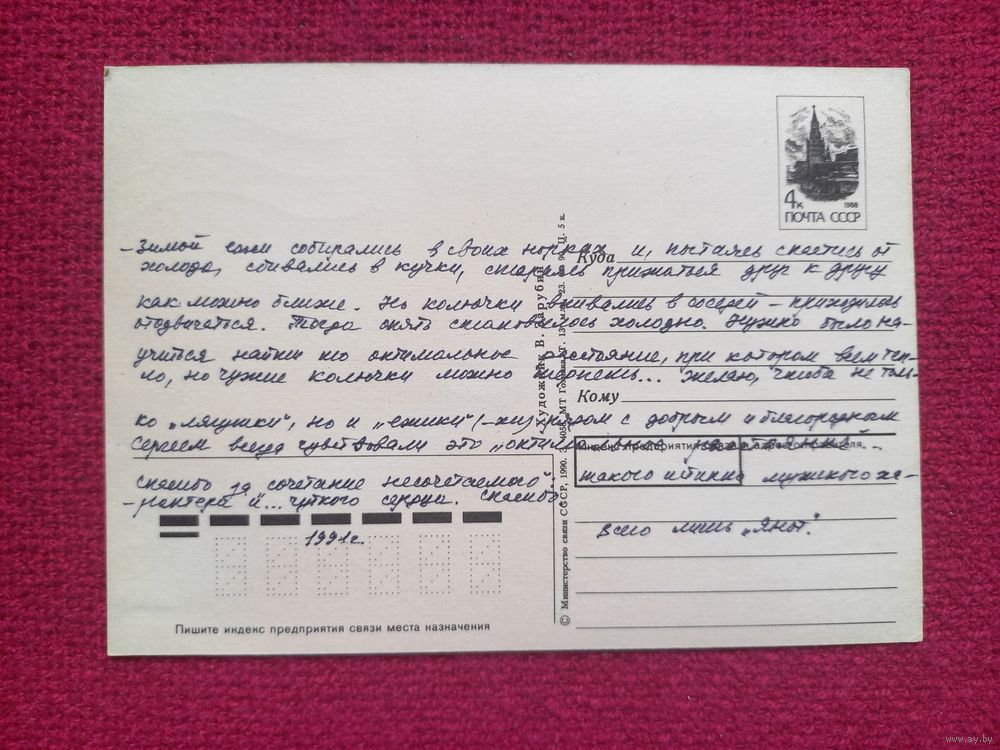 4к 1988
ПОЧТА СССР
– Зимой ежи собирались в своих норках и, пытаясь спастись от
холода, сбивались в кучки, стараясь прижаться друг к другу
Куда
как можно ближе. Но колючки впивались в соседей – приходилось
отодвигаться. Тогда опять становилось холодно. Нужно было на-
учиться найти то оптимальное расстояние, при котором всем теп-
ло, но чужие колючки можно терпеть... Желаю, чтобы не толь-
Кому
ко „лягушки", но и „ежики" (-хи) рядом с добрым и благородным
Сергеем всегда чувствовали это „оптимальное расстояние"...
Индекс предприятия связи и адрес отправителя
Спасибо за сочетание несочетаемого: такого истинно мужского ха-
-рактера и... чуткого сердца. Спасибо.
1991г.
Всего лишь „Яна".
Пишите индекс предприятия связи места назначения
© Министерство связи СССР, 1990.
Художник В. Зарубин
Ц. 5 к.
www.ay.by